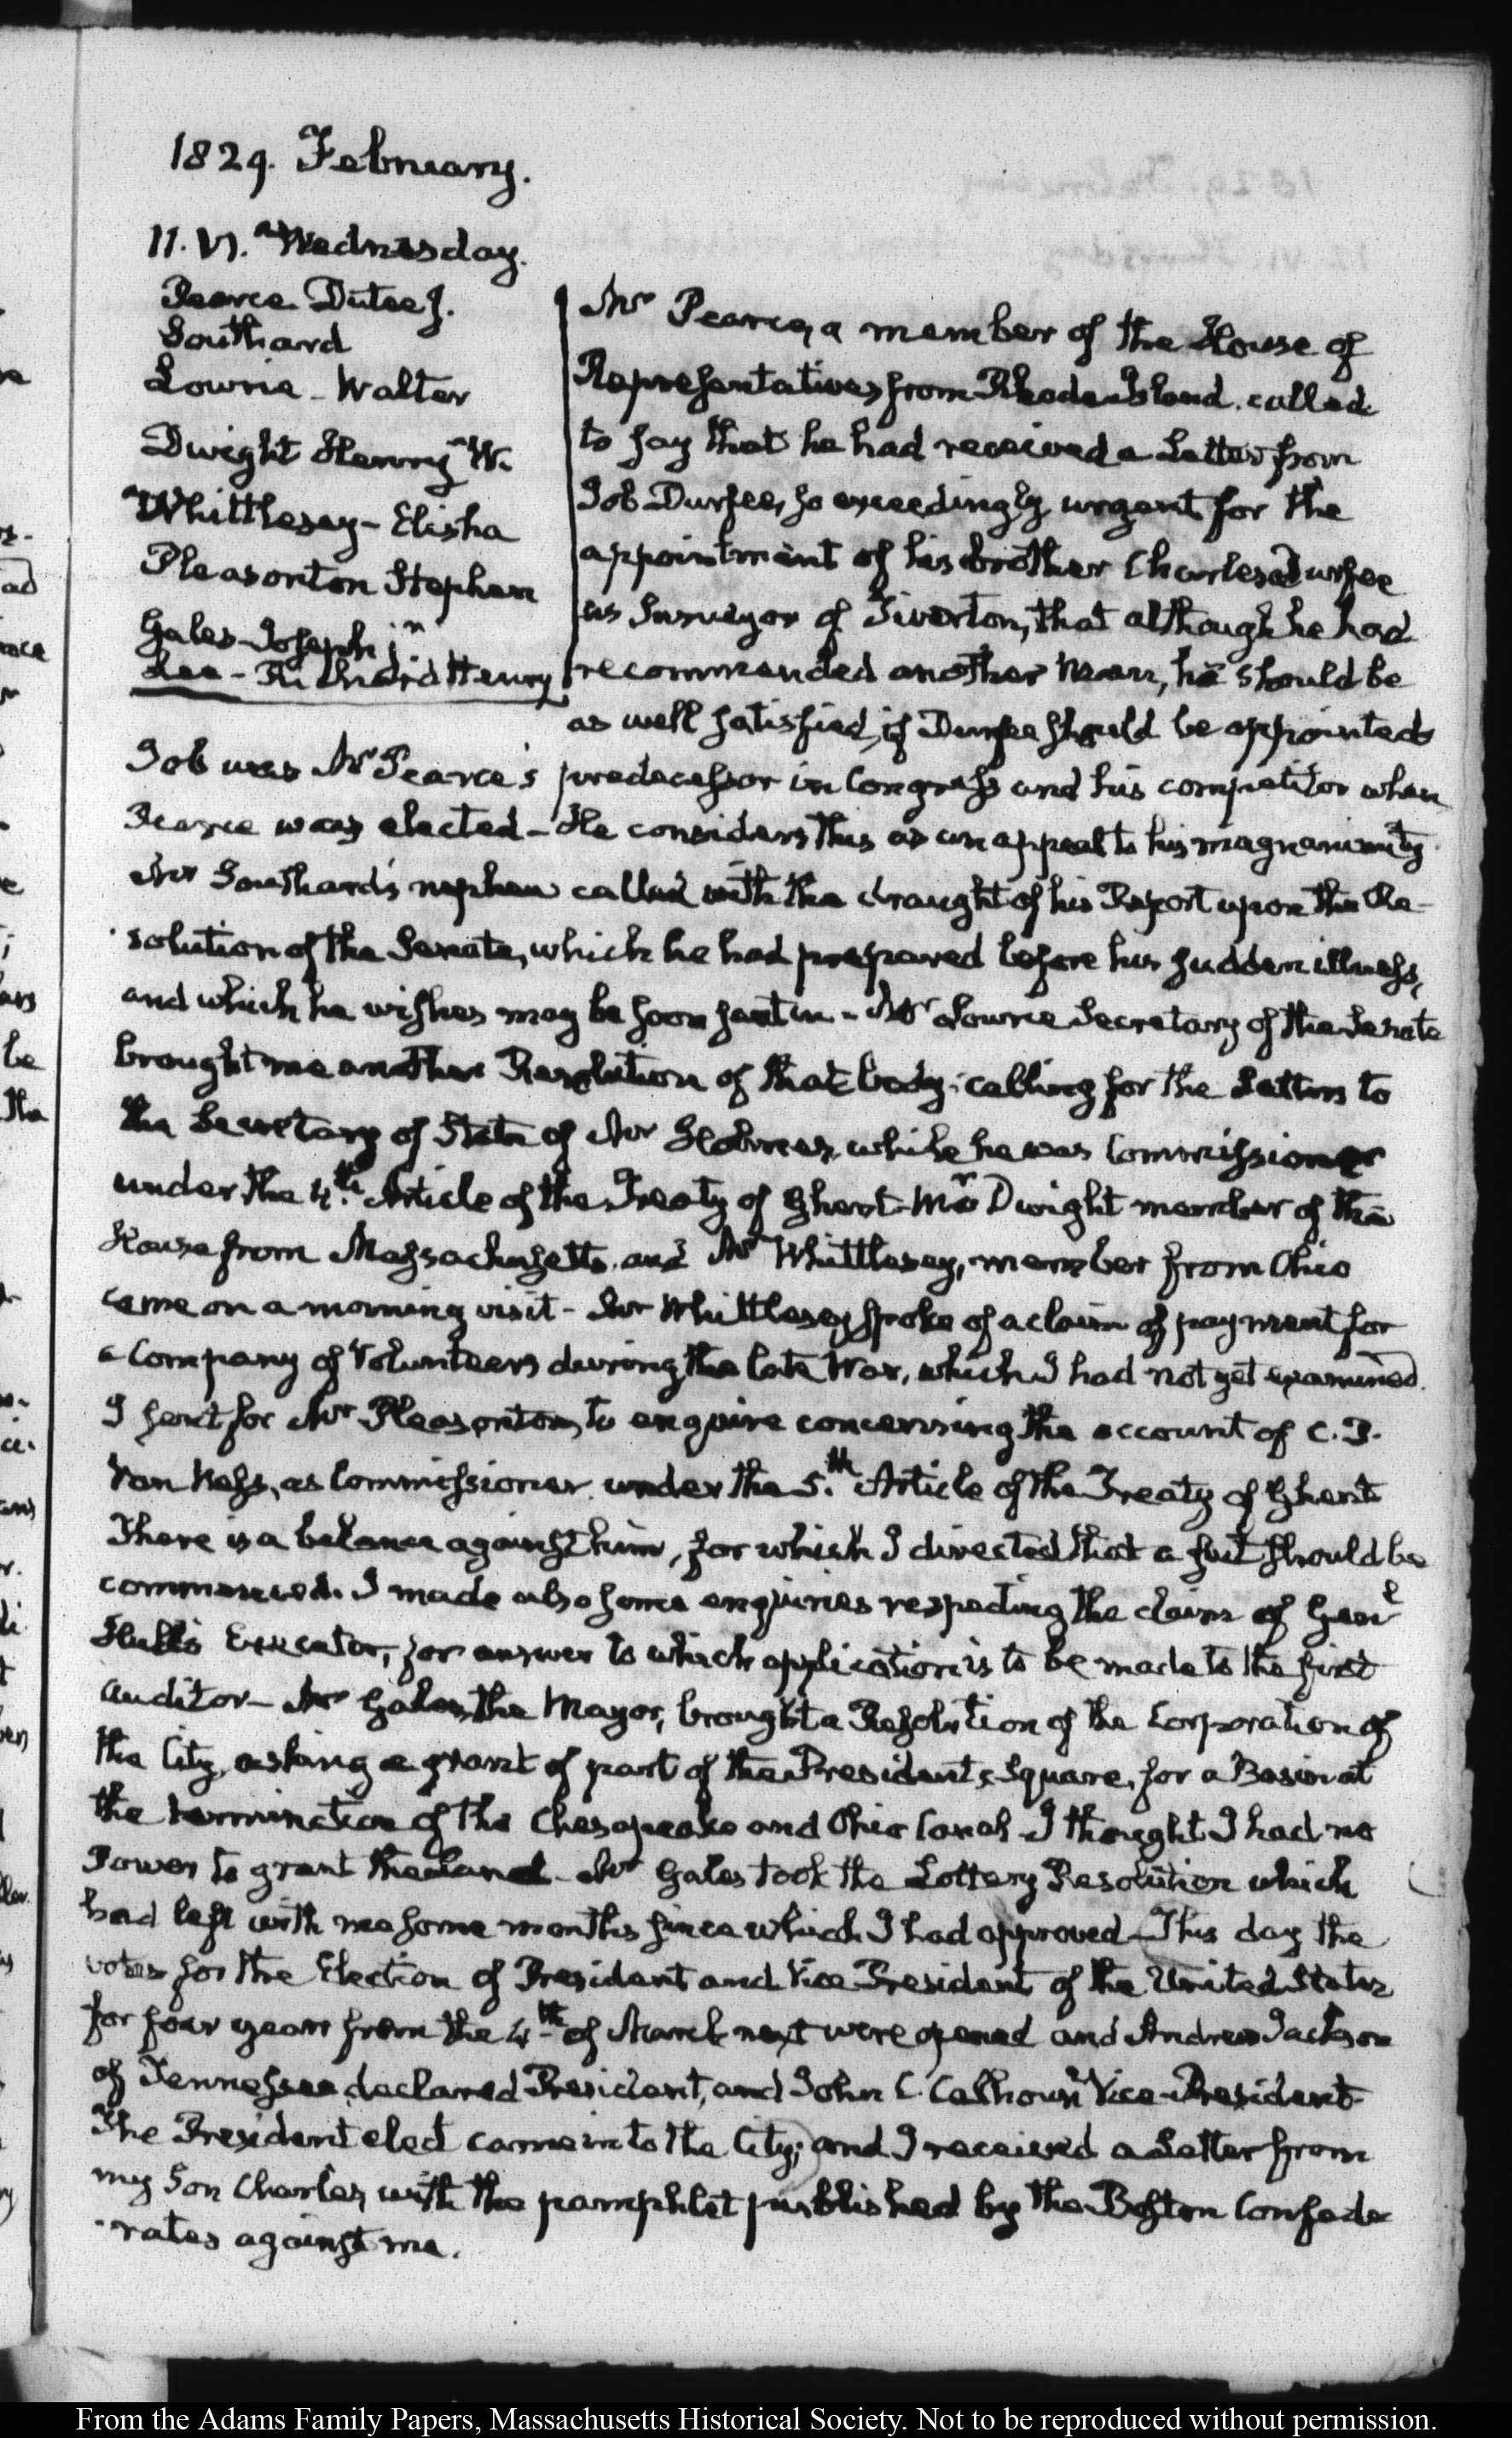 1829. February.
11. VI. Wednesday.
Pearce Dutee J.
Southard
Lowrie - Walter
Dwight Henry W.
Whittlesey - Elisha
Pleasonton Stephen
Gales - Joseph jr
Lee - Richard Henry
Mr Pearce, a member of the House of
Representatives from Rhode-Island, called
to say that he had received a Letter from
Job Durfee, so exceedingly urgent for the
appointment of his brother Charles Durfee
as Surveyor of Tiverton, that although he had
recommended another man, he should be
as well satisfied, if Durfee should be appointed
Job was Mr Pearce's predecessor in Congress and his competitor when
Pearce was elected - He considers this as an appeal to his magnanimity
Mr Southard's nephew called with the draught of his Report upon the Re-
solution of the Senate, which he had prepared before his sudden illness,
and which he wishes may be soon sent in - Mr Lowrie Secretary of the Senate
brought me another Resolution of that body, calling for the Letters to
the Secretary of State of Mr Holmes, while he was Commissioner
under the 4th Article of the Treaty of Ghent - Mr Dwight member of the
House from Massachusetts, and Mr Whittlesey, member from Ohio
came on a morning visit - Mr Whittlesey spoke of a claim of payment for
a Company of Volunteers during the late War, which I had not yet examined.
I sent for Mr Pleasonton, to enquire concerning the account of C. P.
Van Ness, as Commissioner under the 5.th Article of the Treaty of Ghent
There is a balance against him, for which I directed that a suit should be
commenced. I made also some enquiries respecting the claim of Genl
Hull's Executor, for answer to which application is to be made to the first
Auditor - Mr Gales, the Mayor, brought a Resolution of the Corporation of
the City, asking a grant of part of the President's Square, for a Basin at
the termination of the Chesapeake and Ohio Canal - I thought I had no
Power to grant the land - Mr Gales took the Lottery Resolution which
had left with me some months since which I had approved - This day the
votes for the Election of President and Vice President of the United States
for four years from the 4th of March next were opened and Andrew Jackson
of Tennessee declared President, and John C. Calhoun Vice-President
The President elect came in to the City; and I received a Letter from
my Son Charles, with the pamphlet published by the Boston Confede-
rates against me.
From the Adams Family Papers, Massachusetts Historical Society. Not to be reproduced without permission.